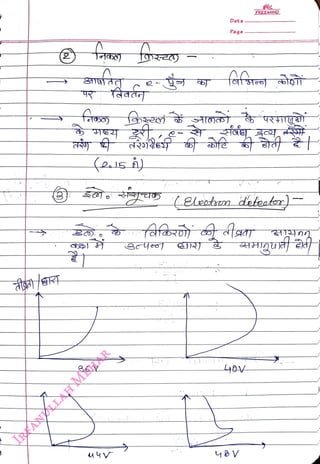 Date
Page
② निकल क्रिस्टल -
→ आपतित e- पुंज का विभिन्न कोणों
पर विवर्तन
→ निकल क्रिस्टल के जालकों के परमाणुओं
के मध्य दूरी, e- से संबंध द्रव्य
तरंग की तरंगदैर्ध्य की कोटि की होती है।
(2.15 Å)
③ इले० संसूचक (Electron detector) -
→ इले० के विकिरणों की तीव्रता आयनन
कक्ष में उत्पन्न धारा के समानुपाती होती
है।
तीव्रता/धारा
36V
40V
44V
48V
IRFANULLAH